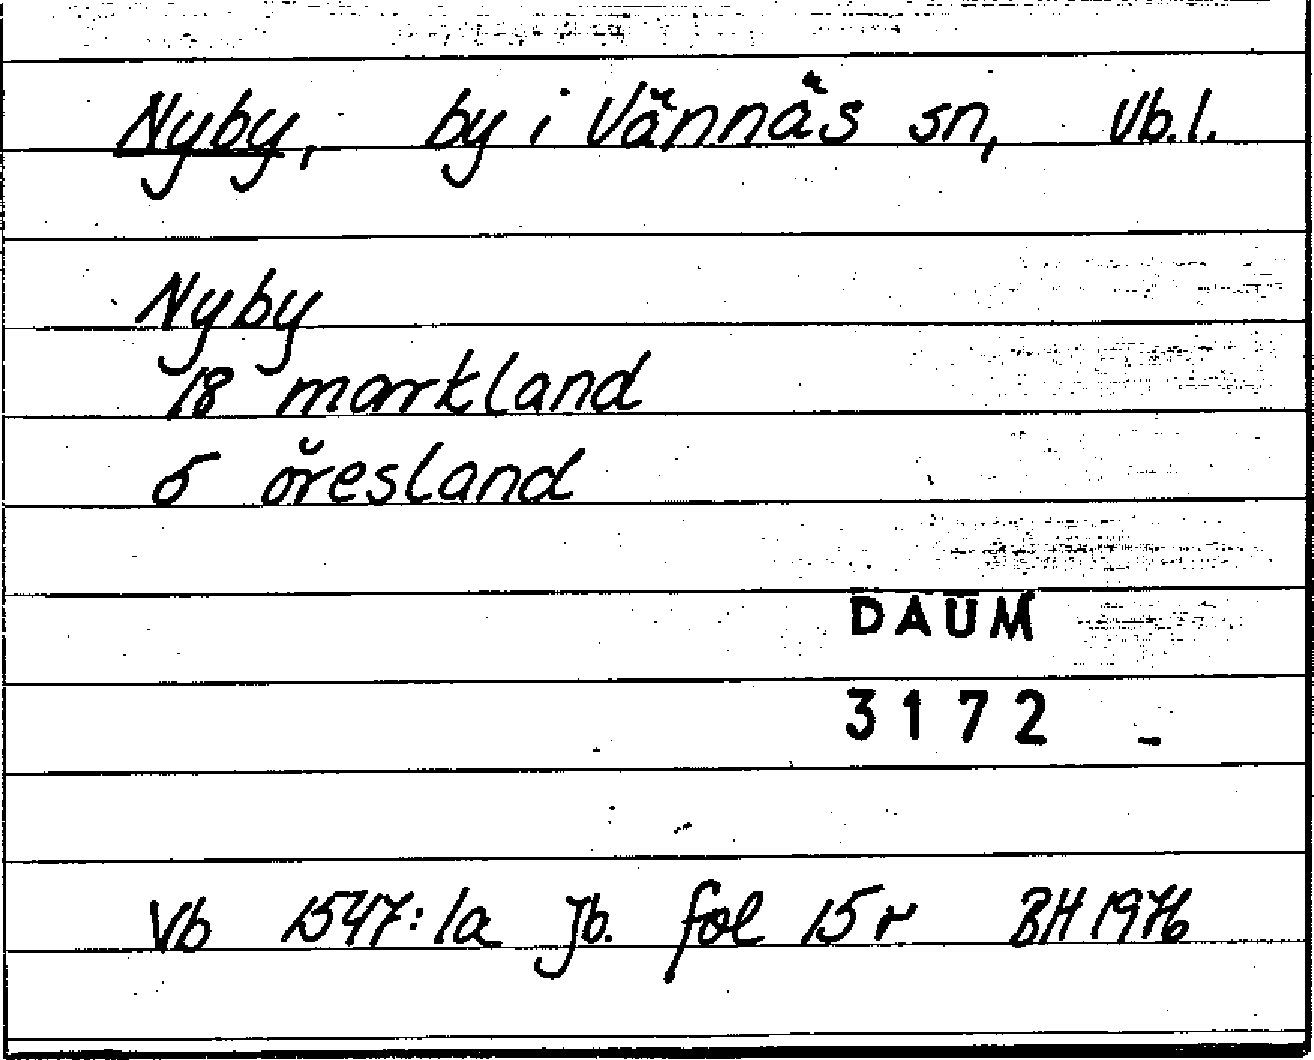 Nyby, by i Vännäs sn, Vb.l.
Nyby
18 markland
5 öresland
DAUM
3172
Vb 1547:1a Jb. fol 15 r BH 1976